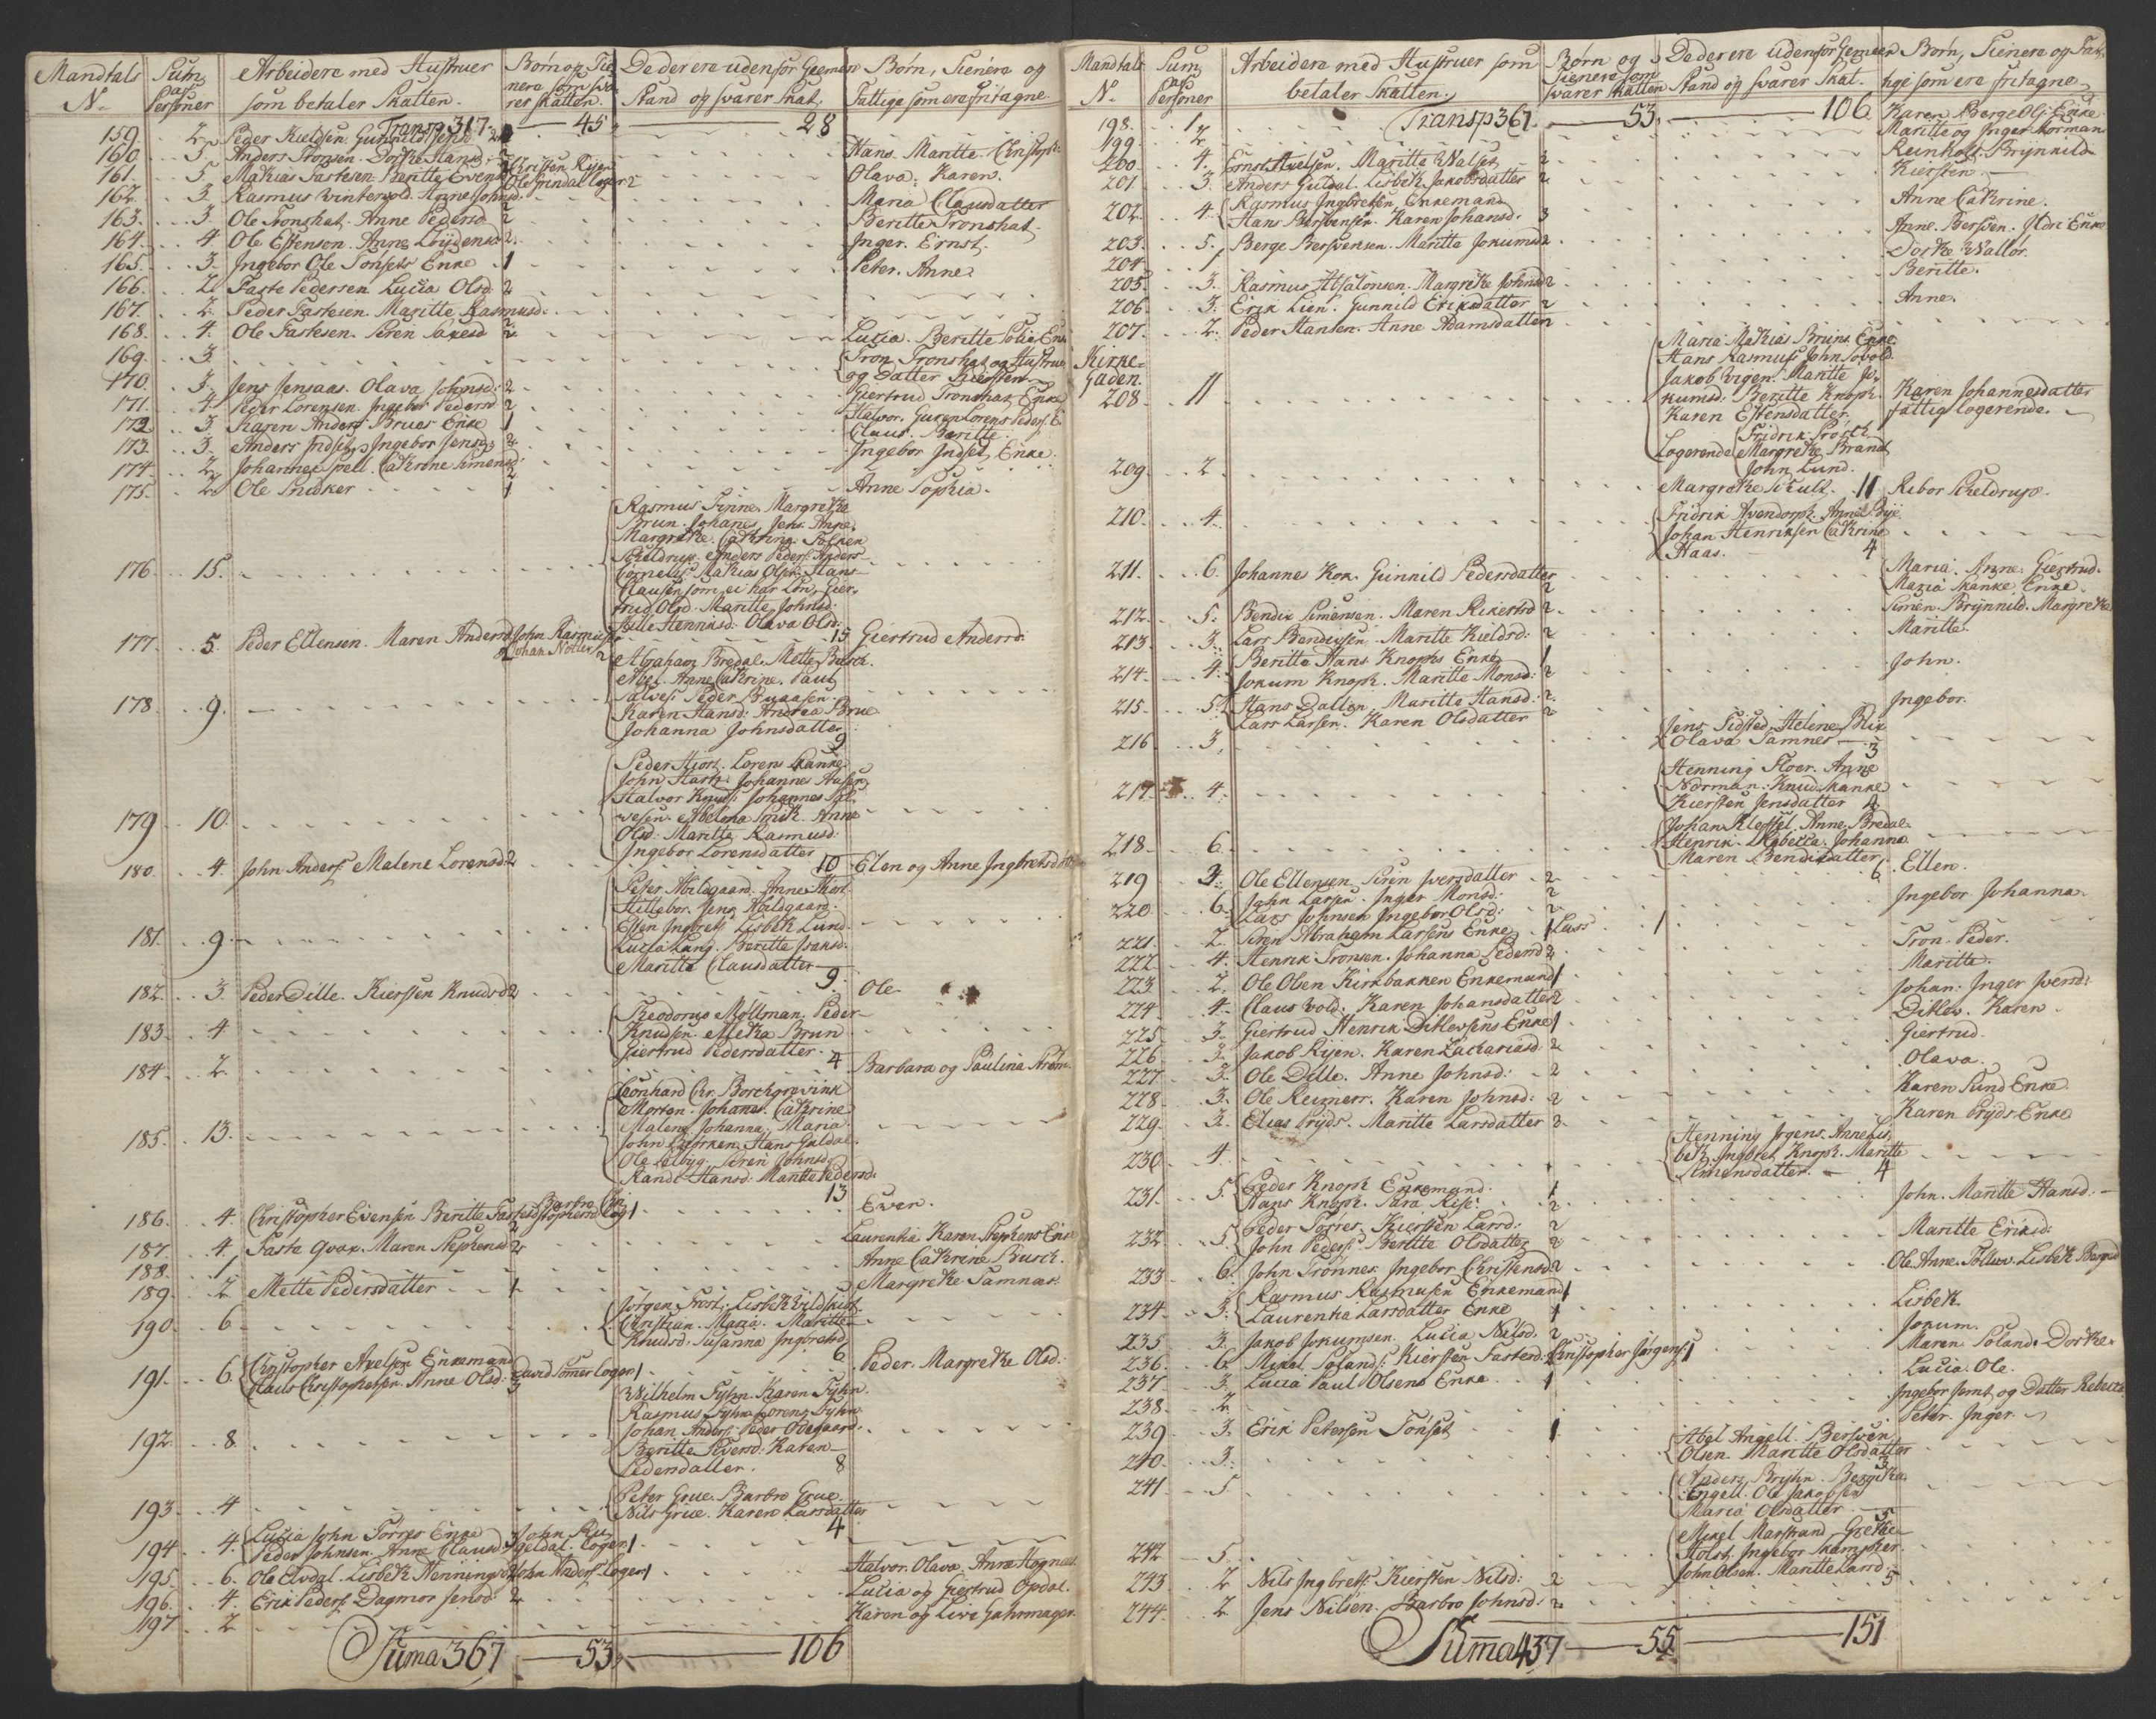 Mandtals N. Sum af Persöner Arbeidere med Hustruer som betaler Skatten. Börn og Tienere som svarer skatten. De der ere udenfor Geemen Stand og svarer Skat. Börn, Tienere og Fattige som ere fritagne.
Transp 317. 45 28
159. 2. Peder Kieldsen. 2
160. 5. Anders Tronsen. Dorte Hansd: 2 Hans. Maritte. Christoph:
161. 5. Mathias Fastesen. Beritte Evensd Christen Rijen Ole Grindal loger 2 Olava. Karen.
162. 3. Rasmus Vintervold. Anne Johnsd. 2 Maria Clausdatter
163. 3. Ole Tronshat. Anne Pedersd 2 Beritte Tronshat.
164. 4. Ole Estenson. Anne 2. Inger. Ernst.
165. 3. Ingebor Ole Tonsets Enke 1 Peter. Anne
166. 2 Faste Pedersen Lucia Olsd. 2
167. 2. Peder Fastesen. Maritte Rasmusd.
168. 4. Ole Fastesen. Siren 2 Lucia. Beritte Enk
169. 3. Tron Tronshat og Hustrue og Datter Kiersten
170. 3. Jens Jensaas. Olava Johnsd: 2 Giertrud Tronshat Enke
171. 4. Peder Lorensen. Ingebor Pedersd 2 Halvor. Guren Lorens Peders. E.
172. 3. Karen Anders Brues Enke 1 Claus. Beritte.
173. 3. Anders Indset. Ingebor Jensd: 2 Ingebor Indset Enke.
174. 2. Johannes Cathrine Simensd: 2
175. 2. Ole Snidker 1 Anne Sophia.
176. 15. Rasmus Finne. Margrethe
Brun. Johanes, Jens. Anne.
Margrethe. Cathrina.
Skieldrup. Anders Peders. Anders
Cornelis: Mathias Olsen. Hans
Clausen som ei har Lön, Gier-
trud Olsd. Maritte Johnsd:
Henriksd: Olava Olsd: 15
177. 5. Peder Ellensen. Maren Andersd John Rasmussen Johan Nöttes 2 Giertrud Andersd:
178. 9. Abraham Bredal. Mette Busch.
Abel. Anne Cathrine. Paul
Salves: Peder
Karen Hansd: Andrea Brue
Johanna Johnsdatter 9
179. 10. Peder Hiort. Lorens Skanke.
John Hartz. Johannes Aasen
Halvor Knuds: Johannes Sal-
vesen. Abelona Smith. Anne
Olsd: Maritte Rasmusd:
Ingebor Lorensdatter 10
180. 4. John Anders: Malene Lorensd: 2 Elen og Anne Ingbretsdøtte
181. 9. Peter Abildgaard. Anne
Hillebor. Jens Abildgaard.
Esten Ingbrets: Lisbeth Lund.
Lucia Lung. Beritte Isaksd:
Maritte Clausdatter 9.
182. 3. Peder Dille. Kiersten Knudsd 2 Ole.
183. 4. Theodorus Möllman. Peder
Knudsen. Metha Brun
Giertrud Pedersdatter. 4
184. 2. Barbara og Paulina Ström
185. 13. Leonhard Chr. Borchgrevink
Morten. Johanes. Cathrine
Malena Johanna. Maria.
John Biorken. Hans Guldal.
Ole Selbyg. Siren Johnsd:
Randi Hansd: Maritte Pedersd. 13
186. 4. Christopher Evensen Beritte Fastesd 2 Barbro Christophersd Log 1 Even.
187. 4. Faste Qvar. Maren Stephensd 2 Laurentia Karen Stephens Enke
188. 1 Anne Cathrine Busch.
189. 2 Mette Pedersdatter 1 Margrethe Samnæs.
190. 6 Jörgen Frost. Lisbeth Vildskut.
Christian. Maria. Maritte
Knudsd: Susanna Ingbretsd 6
191. 6 Christopher Axelsen Enkemand
Claus Christophersen. Anne Olsd: 3 David Somer loger 1 Peder. Margrethe Olsd:
192. 8. Wilhelm Tyhn. Karen Tyhn.
Rasmus Tyhn. Lorens Tyhn
Johan Anders: Peder Odegaard.
Beritte Siversd. Karen
Pedersdatter. 8
193. 4 Peter Grue. Barbro Grue.
Nils Grue. Karen Larsdatter 4
194. 4. Lucia John Torres Enke
Peder Johnsen. Anne Clausd: 3 John Rugeldal. loger 1
195. 6. Ole Elvdal. Lisbeth Henningsd John Anders: loger 1 Halvor. Olava. Anne Hognæs.
196. 4. Erik Peders: Dagmor Jensd: 2 Lucia og Giertrud Opdal.
197 2 Karen og Live Gahrmager.
Suma 367 53, 106
Mandtals N. Sum af Persöner Arbeidere med Hustruer som betaler Skatten. Börn og Tienere som svarer skatten De der ere udenfor Gemeen Stand og svarer Skat. Börn, Tienere og Fattige som ere fritagne
Transp 367. 53, 106
198. 1 Karen Berge Enke
199. 2 Maritte og Inger Korman
200. 4. Ernst Axelsen. Maritte Walset 2 Reinholt. Brynnild
201. 3. Anders Guldal. Lisbeth Jakobsdatter 2 Kiersten.
202. 4. Rasmus Ingbretsen Enkemand
Hans Bersvensen. Karen Johansd: 3 Anne Cathrine.
203. 5. Berge Bersvensen. Maritte Jokumsd 2 Anne. Bersven. Enke
204. 1 Dorthe Wallor.
205. 3. Rasmus Absalonsen. Margrethe Johnsd 2. Beritte.
206. 3. Erik Lien. Gunnild Eriksdatter 2 Anne.
207. 2. Peder Hansen. Anne Adamsdatter 2
Kirke-Gaden.
208. 11 Maria Mathias Bruns Enke.
Hans Rasmus: John Sovold.
Jakob Vigen. Maritte Jo-
kumsd: Beritte Knoph.
Karen Estensdatter.
Logerende Fridrik Prösch
Margrethe Brandt
John Lund. 11
Karen Johannesdatter
fattig logerende.
209. 2 Margrethe Schult. Rebor Skeldrup.
210. 4. Fridrik Avendorph. Anne Brye
Johan Henriksen Cathrine
Haas. 4
211. 6. Johannes Kok. Gunnild Pedersdatter 2 Maria. Anne. Giertrud.
Maria Skanke Enke.
212. 5. Bendix Simensen. Maren Rikertsd 2 Simen. Brynnild. Margrethe
213. 3. Lars Bendixsen. Maritte Kieldsd: 2 Maritte.
214. 4. Beritte Hans Knophs Enke 1
Jokum Knoph. Maritte Monsd: 2 John.
215. 5. Hans Dallen. Maritte Hansd: 2.
Lars Larsen. Karen Olsdatter 2 Ingebor.
216. 3. Jens Tidsted. Helene Blix
Olava Samnes 3
217. 4. Henning Floer. Anne
Norman. Knud Skanke
Kiersten Jensdatter 4
218. 6. Johan Klefsel. Anne Bredal.
Henrik. Rebecca. Johanna.
Maren Bendixdatter. 6
219 3. Ole Ellensen. Siren Iversdatter 2. Ellen.
220. 6. John Larsen. Inger Monsd: 2
Lars Johnsen Ingebor Olsd: 2 Ingebor Johanna.
221. 2. Siren Abraham Larsens Enke 1 Lars 1
222. 4. Henrik Tronsen. Johanna Pedersd 2 Tron. Peder.
223. 2. Ole Olsen Kirkbakken Enkemand 1 Maritte.
224. 4. Claus Vold. Karen Johansdatter 2 Johan: Inger Svend:
225. 3. Giertrud Henrik Ditlevsens Enke 1 Ditlev. Karen
226. 3. Jakob Rijen. Karen Zachariasd: 2 Giertrud.
227. 3. Ole Dille. Anne Johnsd: 2 Olava.
228. 3. Ole Reimers. Karen Johnsd: 2 Karen Sund Enke.
229. 3. Elias Prÿds. Maritte Larsdatter 2 Karen Prÿds Enke
230. 4. Henning Irgens. Anne Lis-
beth. Ingbret Knoph. Maritte
Simensdatter. 4
231. 5. Peder Knoph Enkemand. 1
Hans Knoph. Sara Rise. 2. John. Maritte Hansd:
232. 5. Peder Torres. Kiersten Larsd: 2
John Peders: Beritte Olsdatter 2 Maritte Eriksd:
233. 6. John Trönnes. Ingebor Christensd 2 Ole. Anne. Tollev. Lisbeth
234. 3. Rasmus Rasmusen Enkemand 1
Laurentia Larsdatter Enke 1 Lisbeth.
235. 3. Jakob Jokumsen. Lucia Nilsd. 2 Jokum.
236. 6. Mikel Polands: Kiersten Fastesd: 2 Christopher Jörgens: 1 Maren Poland. Dorthe.
237. 3. Lucia Paul Olsens Enke 1 Lucia. Ole.
238. 2 Ingebor og Datter Rebecca
239. 3. Erik Petersen Tönset 1. Peter. Inger.
240. 3. Abel Angell. Bersven
Olsen. Maritte Olsdatter 3
241. 5 Anders Bryhn. Bergitha
Angell. Ole Jakobsen
Maria Olsdatter. 5
242 5. Mikel Marstrand. Grethe
Holst. Ingebor
John Olsen. Maritte Larsd: 5
243. 2 Nils Ingbrets: Kiersten Nilsd: 2
244. 2. Jens Nilsen. Barbro Johnsd: 2
Summa 437 55. 151